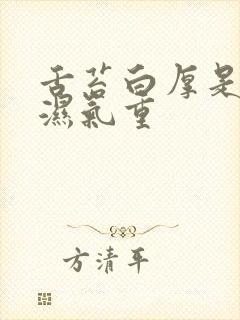 舌苔白厚是
濕氣重
方清平